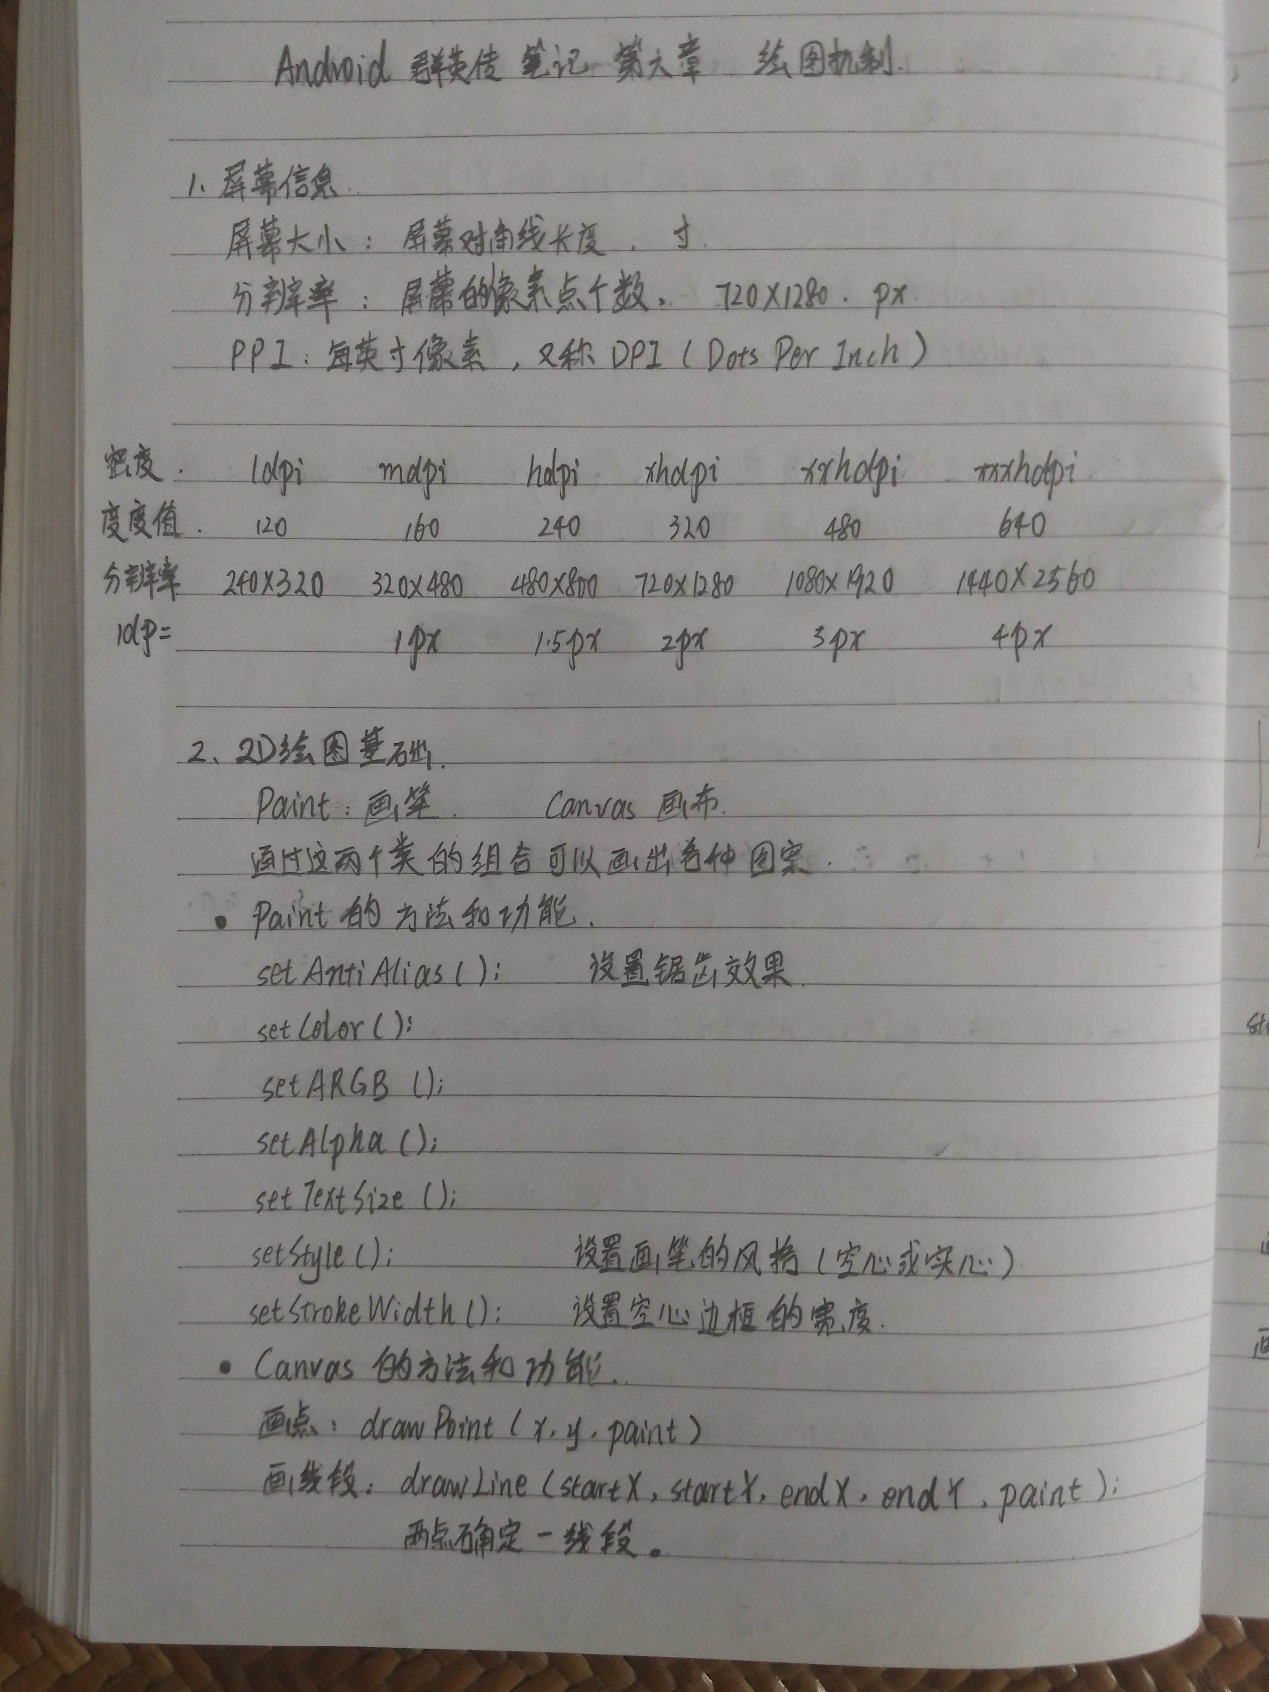 Android 群英传 笔记 第六章 绘图机制.
1、屏幕信息.
屏幕大小：屏幕对角线长度，寸.
分辨率：屏幕的像素点个数， 720X1280. px.
PPI：每英寸像素，又称 DPI (Dots Per Inch)
密度. ldpi mdpi hdpi xhdpi xxhdpi xxxhdpi
度度值. 120 160 240 320 480 640
分辨率 240X320 320X480 480X800 720X1280 1080X1920 1440X2560
1dp= 1px 1.5px 2px 3px 4px
2、2D绘图基础.
Paint：画笔. Canvas 画布.
通过这两个类的组合可以画出各种图案.
• Paint 的方法和功能.
setAntiAlias(); 设置锯齿效果.
setColor();
setARGB();
setAlpha();
setTextSize();
setStyle(); 设置画笔的风格(空心或实心)
setStrokeWidth(); 设置空心边框的宽度.
• Canvas 的方法和功能..
画点：drawPoint(x, y, paint)
画线段：drawLine(startX, startY, endX, endY, paint);
两点确定一线段。